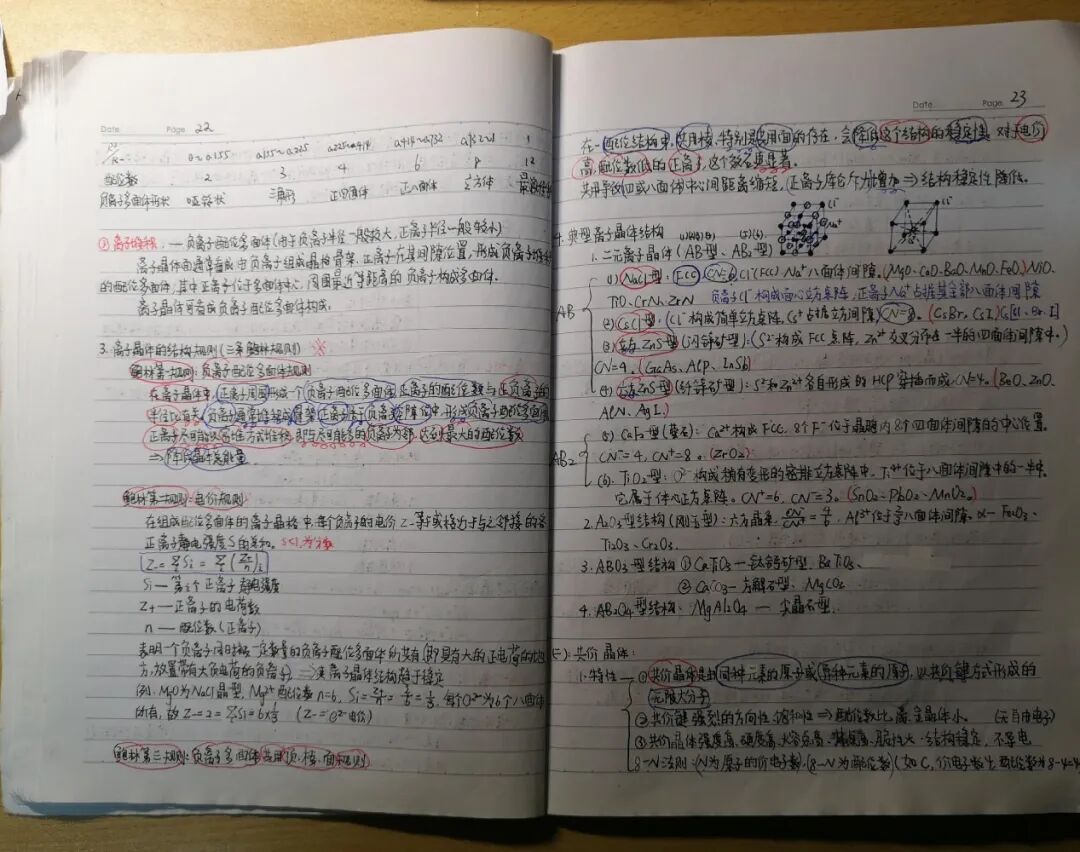 Date Page 22
R+/R- 0~0.155 0.155~0.225 0.225~0.414 0.414~0.732 0.732~1 1
配位数 2 3 4 6 8 12
负离子多面体形状 哑铃状 三角形 正四面体 正八面体 立方体 最密堆积
②离子堆积,——负离子配位多面体(由于负离子半径一般较大,正离子半径一般较小)
离子晶体通常看成由负离子组成晶格骨架,正离子在其间隙位置,形成负离子
的配位多面体,其中正离子位于多面体中心,周围最近等距离的负离子构成多面体.
离子晶体可看成负离子配位多面体构成.
3.离子晶体的结构规则(三条鲍林规则) ※
鲍林第一规则:负离子配位多面体规则
在离子晶体中,正离子周围形成一个负离子配位多面体,正离子的配位数与正负离子的
半径比有关,负离子通常堆积成骨架,正离子处于负离子空隙位中,形成负离子配位多面体
正离子尽可能以 方式堆积,即与尽可能多的负离子为邻,达到最大的配位数
⇒降低晶体总能量.
鲍林第二规则:电价规则
在组成配位多面体的离子晶格中,每个负离子的电价Z-等于或接近于与之邻接的各
正离子静电强度S的总和. S<1,为分数
Z-=∑Si=∑(Z+/n)i
Si——第i个正离子静电强度
Z+——正离子的电荷数
n——配位数(正离子)
表明一个负离子同时被一定数量的负离子配位多面体所共有(即具有大的正电荷的地
方,放置带有大负电荷的负离子)⇒使离子晶体结构趋于稳定
例:MgO为NaCl晶型,Mg²⁺配位数n=6,Si=Z+/n=2/6=1/3,每个O²⁻为6个八面体
所有,故Z-=2=∑Si=6×1/3 (Z-=O²⁻电价)
鲍林第三规则:负离子多面体共用顶、棱、面规则
Date Page 23
在一配位结构中,共用棱,特别是共用面的存在,会降低这个结构的稳定性.对于电价
高,配位数低的正离子,这个效应更显著.
共用导致四或八面体中心间距离缩短,正离子库仑斥力增加⇒结构稳定性降低.
Cl⁻
Na⁺
Cl⁻
4.典型离子晶体结构
1.二元离子晶体(AB型、AB₂型)
AB
(1)NaCl型:FCC CN=6 Cl⁻(FCC) Na⁺八面体间隙.(MgO、CaO、BaO、MnO、FeO)NiO、
TiO、CrN、ZrN 负离子Cl⁻构成面心立方点阵,正离子Na⁺占据其全部八面体间隙
(2)CsCl型:(Cl⁻构成简单立方点阵,Cs⁺占据立方间隙)CN=8.(CsBr、CsI)
(3)立方ZnS型(闪锌矿型):(S²⁻构成FCC点阵,Zn²⁺交叉分布在一半的四面体间隙中.)
CN=4.(GaAs、AlP、InSb)
(4)六方ZnS型(纤锌矿型):S²⁻和Zn²⁺各自形成的HCP穿插而成,CN=4.(BeO、ZnO、
AlN、AgI.)
AB₂
(5)CaF₂型(萤石):Ca²⁺构成FCC,8个F⁻位于晶胞内8个四面体间隙的中心位置.
CN⁻=4,CN⁺=8。(ZrO₂)
(6).TiO₂型:O²⁻构成稍有变形的密排立方点阵中,Ti⁴⁺位于八面体间隙中的一半.
它属于体心正方点阵。CN⁺=6,CN⁻=3。(SnO₂、PbO₂、MnO₂)
2.A₂O₃型结构(刚玉型):六方晶系,CN⁻/CN⁺=4/6,Al³⁺位于2/3八面体间隙.α-Fe₂O₃、
Ti₂O₃、Cr₂O₃.
3.ABO₃型结构①CaTiO₃—钛钙矿型,BaTiO₃、
②CaCO₃—方解石型、MgCO₃
4.AB₂O₄型结构:MgAl₂O₄——尖晶石型.
(五):共价晶体:
1.特性—①共价晶体是由同种元素的原子或异种元素的原子,以共价键方式形成的
无限大分子
②共价键强烈的方向性、饱和性⇒配位数比离、金晶体小。 (无自由电子)
③共价晶体强度高、硬度高、熔点高、脆性大、结构稳定,不导电
8-N法则:(N为原子的价电子数,(8-N为配位数)(如C,价电子数4,配位数为8-4=4